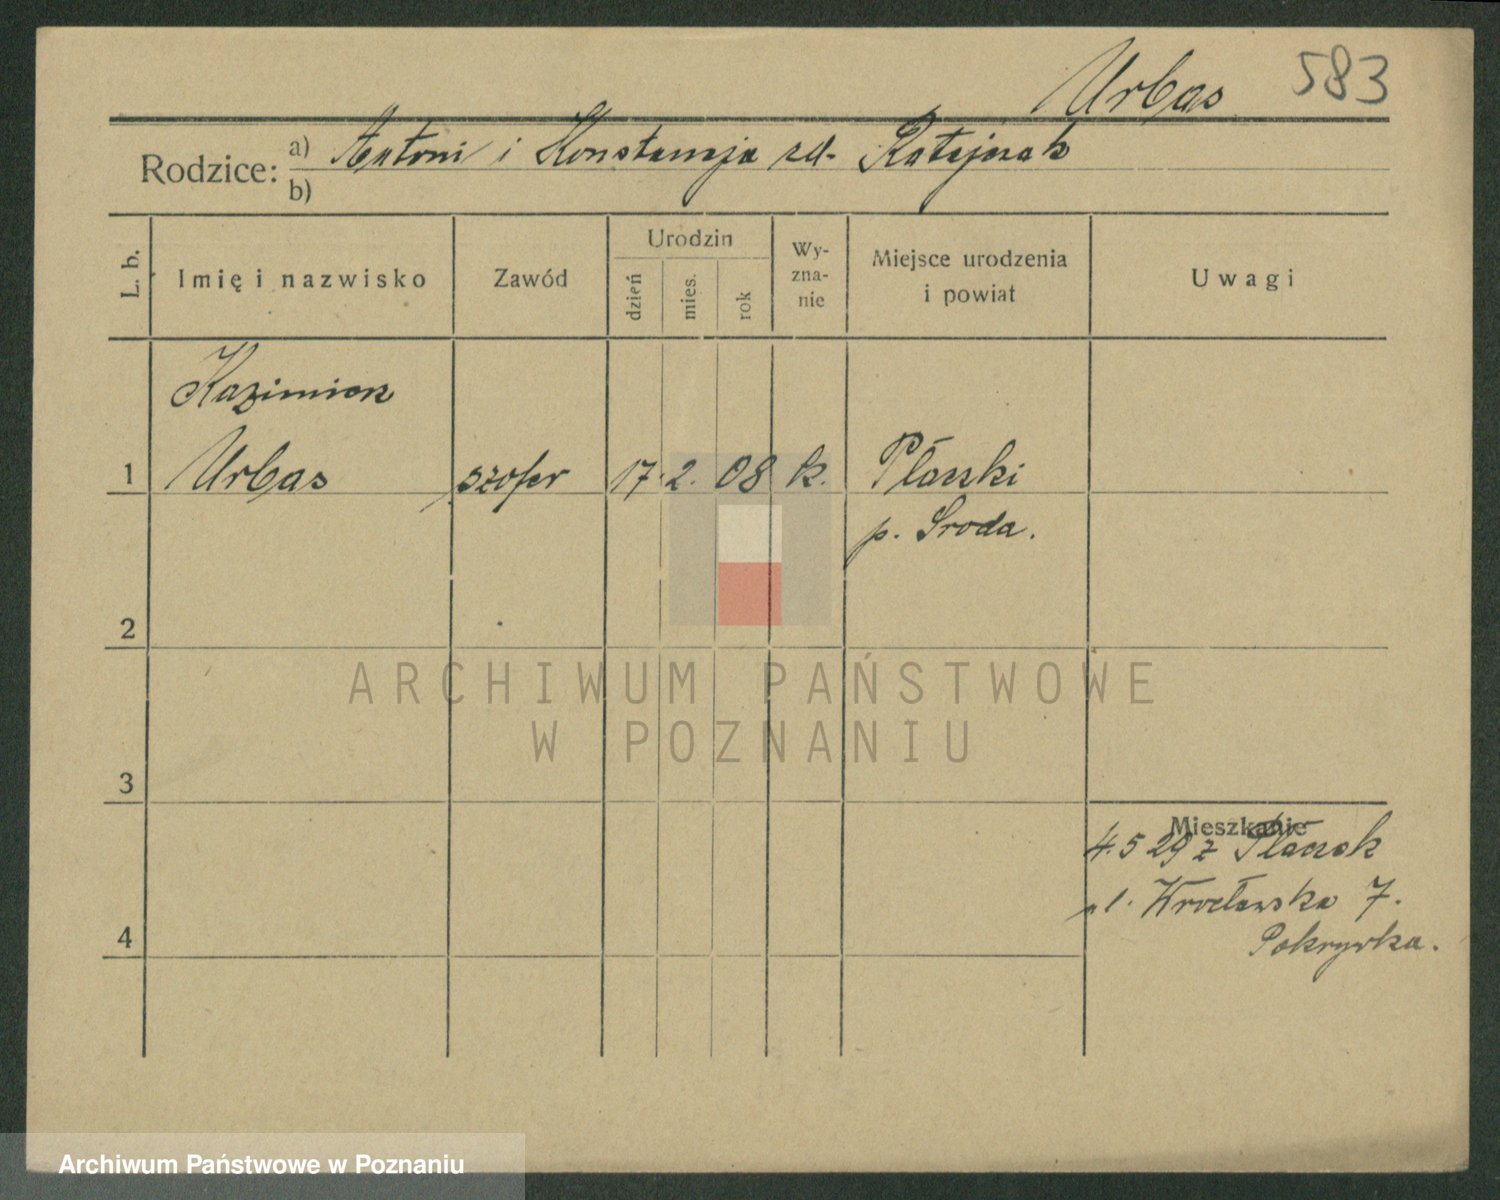 Urbas 583
Rodzice: a) Antoni i Konstancja zd. Ratajczak
b)
L. b. Imię i nazwisko Zawód Urodzin dzień mies. rok Wy-zna-nie Miejsce urodzenia i powiat Uwagi
Kazimierz
1 Urbas szofer 17. 2. 08 k. Płaczki
p. Sroda.
2
ARCHIWUM PAŃSTWOWE
W POZNANIU
3
Mieszkanie
4.5 29 z Płaczek
ul. Wrocławska 7.
4 Pokrywka.
Archiwum Państwowe w Poznaniu